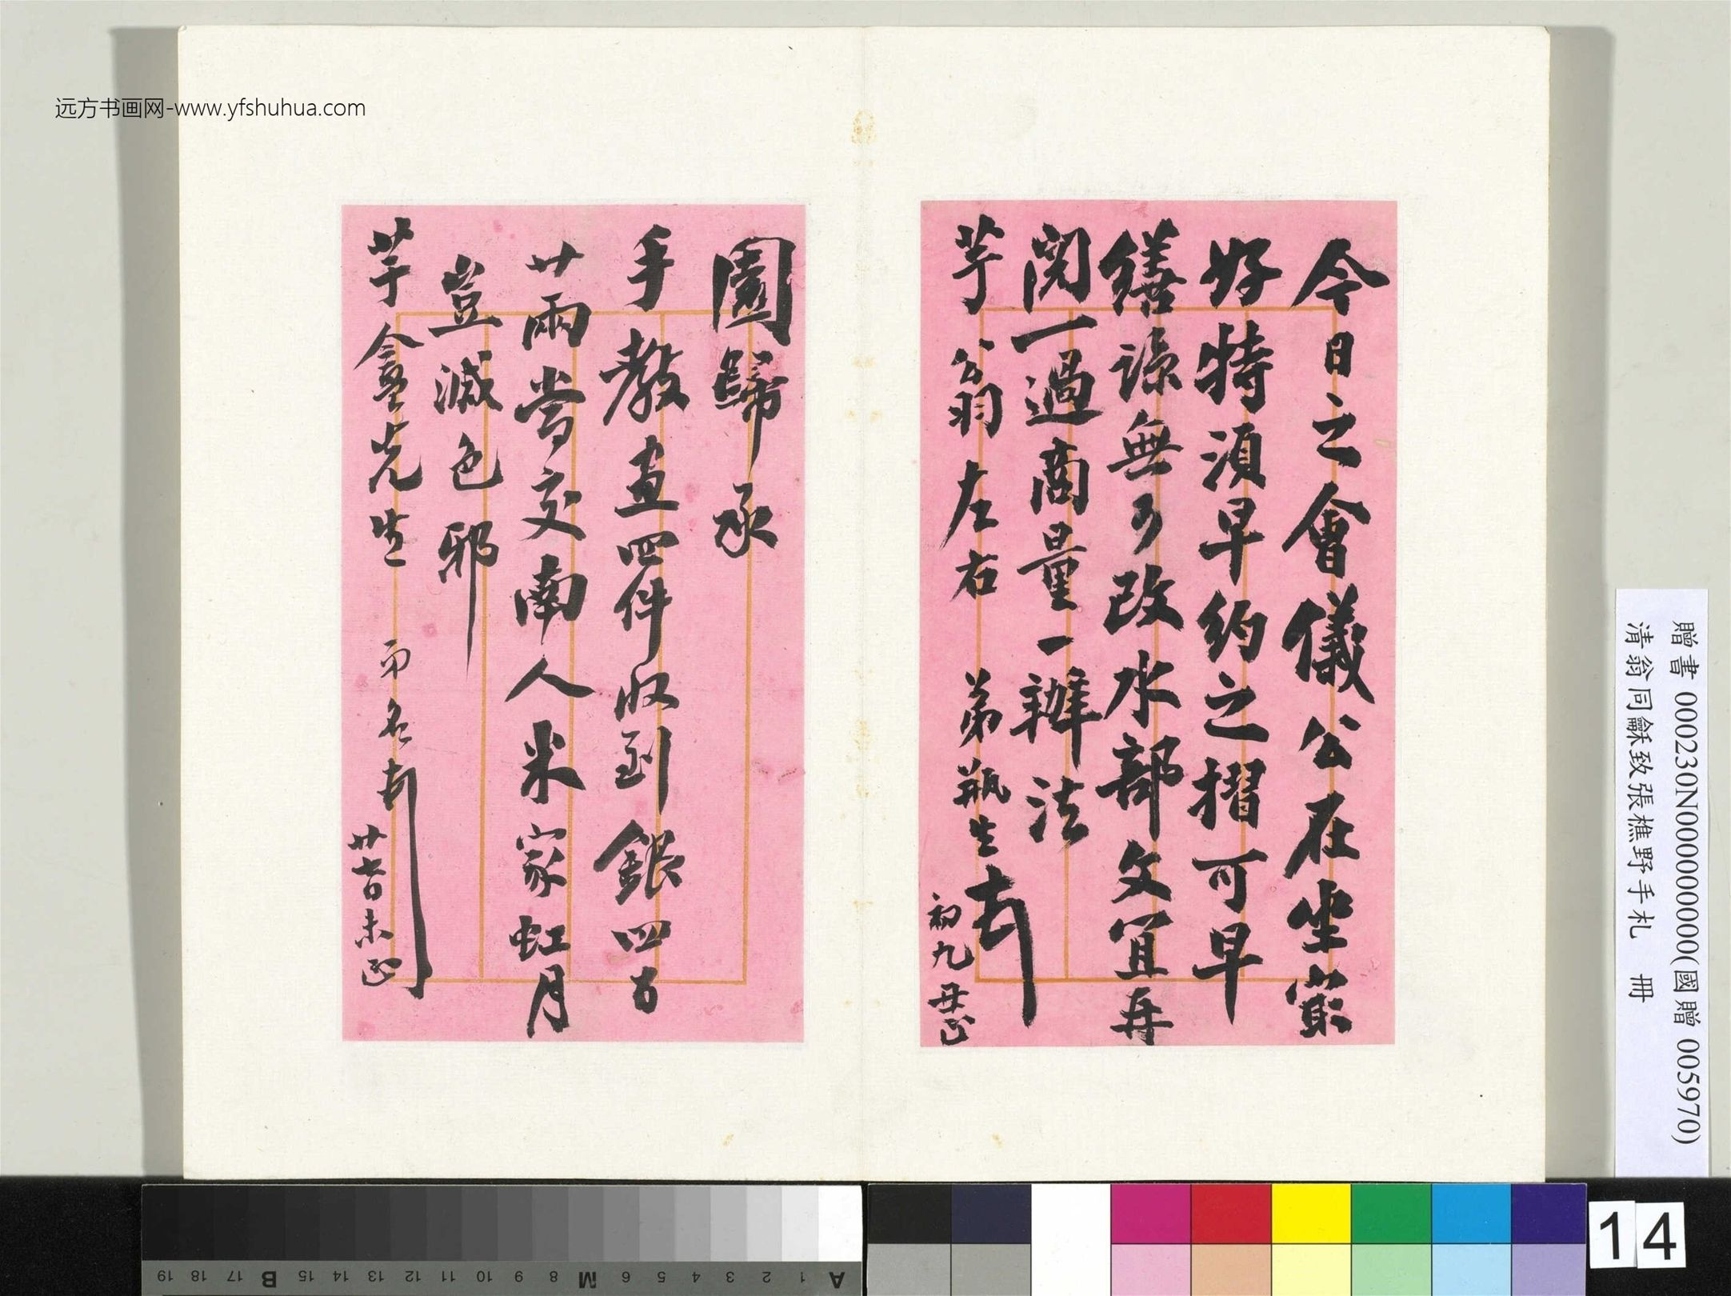 远方书画网-www.yfshuhua.com
今日之會儀公在坐寂
好特須早約之摺可早
繕諒無可改水部文宜再
閱一過商量一辦法
芋公翁左右 弟瓶生 初九
園歸承
手教畫四件收到銀四百
廿兩當交南人米家虹月
豈減色邪
芋盦先生 両名
贈書 000230N000000000(國贈 005970)
清翁同龢致張樵野手札 冊
14
A 1 2 3 4 5 6 M 8 9 10 11 12 13 14 15 B 17 18 19